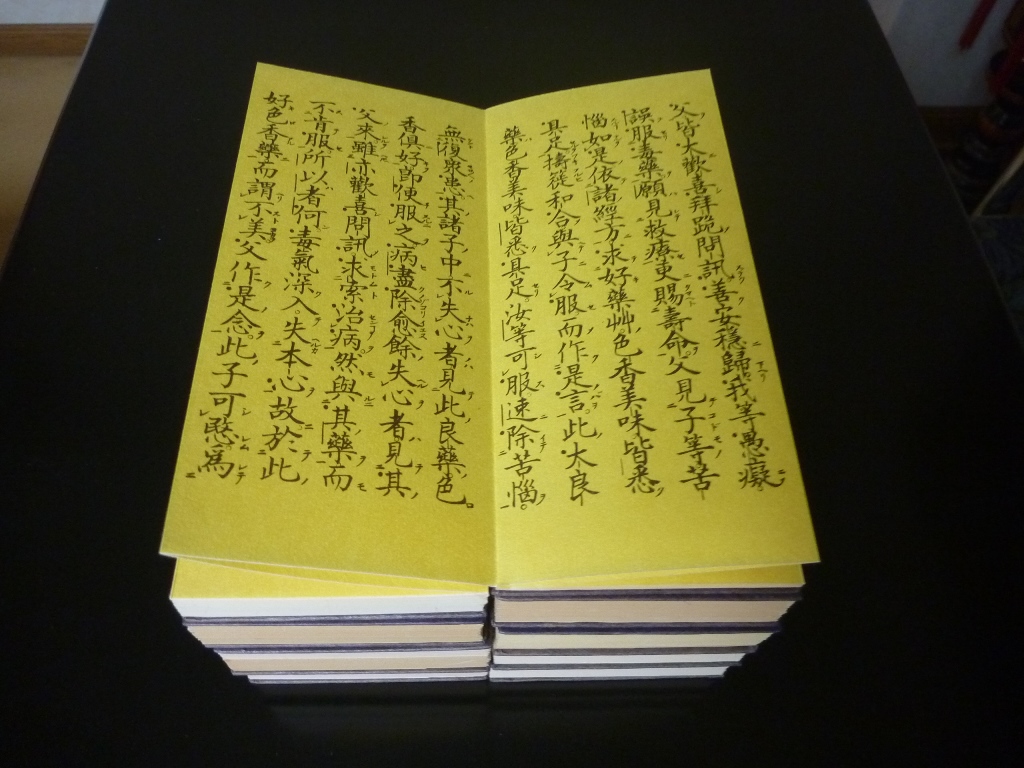 父皆大歡喜拜跪問訊善安穩歸我等愚癡
誤服毒藥願見救療更賜壽命父見子等苦
惱如是依諸經方求好藥艸色香美味皆悉
具足擣簁和合與子令服而作是言此大良
藥色香美味皆悉具足汝等可服速除苦惱
無復衆患其諸子中不失心者見此良藥色
香俱好卽便服之病盡除愈餘失心者見其
父來雖亦歡喜問訊求索治病然與其藥而
不肯服所以者何毒氣深入失本心故於此
好色香藥而謂不美父作是念此子可愍爲